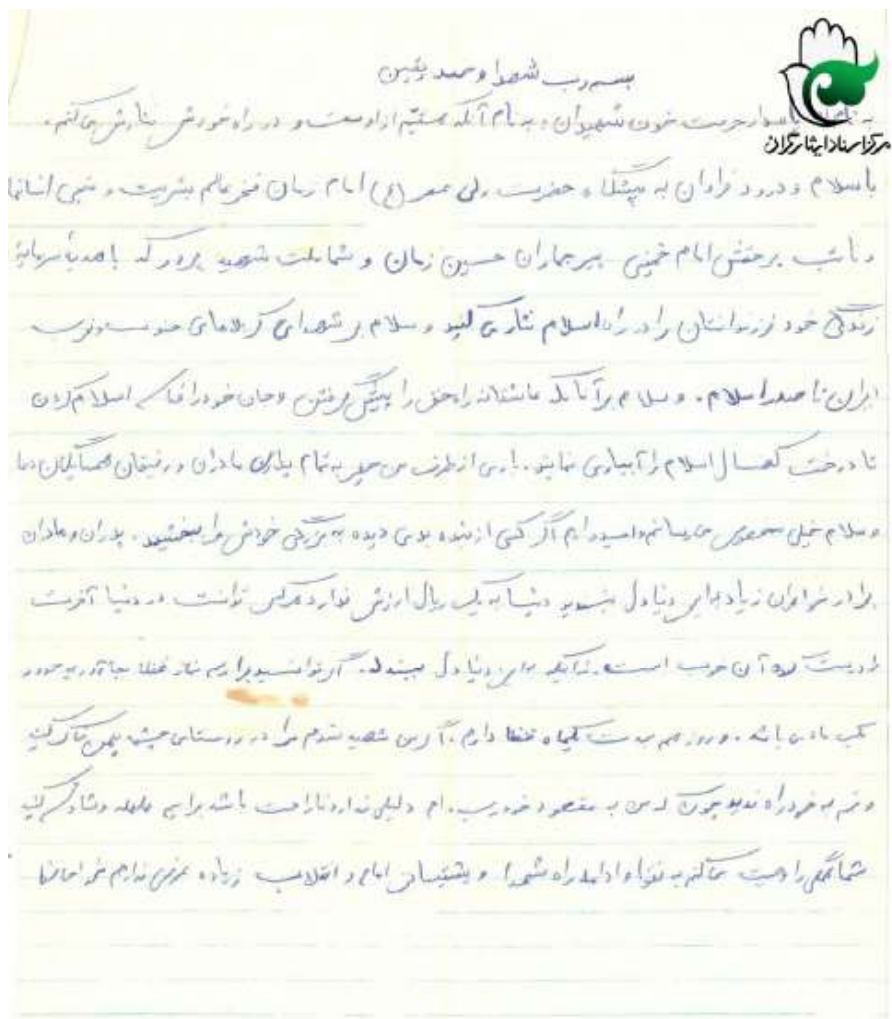 بسم رب شهدا و صدیقین
به نام پاسدار حرمت خون شهیدان، به نام آنکه هستیم از اوست و در راه خودش نثارش می‌کنم.
مرکز اسناد ایثارگران
با سلام و درود فراوان به پیشگاه حضرت ولی عصر (عج) امام زمان فخر عالم بشریت و منجی انسانها
و نائب برحقش امام خمینی پیر جماران حسین زمان و شما ملت شهید پرور که با هدیه سرمایه
زندگی خود فرزندانتان را در راه اسلام نثار می کنید و سلام بر شهدای کربلاهای جنوب و غرب
ایران تا صدر اسلام. و سلام بر آنانکه عاشقانه راه حق را پیش گرفتن و جان خود را فدای اسلام کردن
تا درخت کهنسال اسلام را آبیاری نمایند. از طرف من به تمام مادران و رفیقان همسایگان دعا
و سلام خیلی می رسانم و امیدوارم اگر کسی از بنده بدی دیده به بزرگی خودش مرا ببخشید. پدران و مادران
برادر خواهران زیاد به این دنیا دل نبندید دنیا به یک ریال ارزش ندارد هرکس توانست در دنیا آخرت
را درست کند آن خوب است. نه آنکه به این دنیا دل ببندد. اگر توانستید برایم نماز بجا آورید
باشد. و روزه هم به مدت یکماه دارم. اگر من شهید شدم مرا در روستای چشمه کنید
و غم به خود راه ندهید چون که من به مقصود خود رسیده ام دلیلی ندارد ناراحت باشد برایم کنید
شما همگی را وصیت می کنم به تقوا و ادامه راه شهدا و پشتیبانی امام و انقلاب زیاده عرضی ندارم خداحافظ